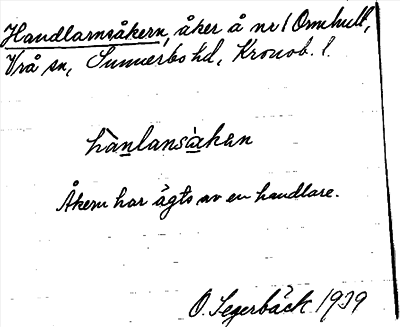 Handlarnsåkern, åker å nr 1 Ornhult,
Vrå sn, Sunnerbo hd, Kronob. l.
hànlansàkan
Åkern har ägts av en handlare.
O. Segerbäck 1939